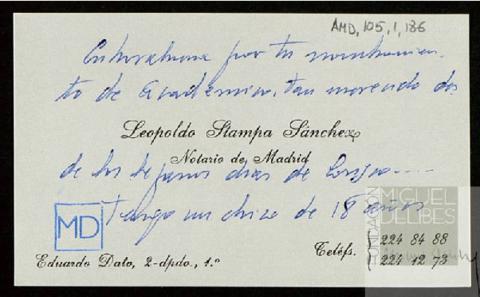 AMD, 105, 1, 186
Enhorabuena por tu nombramien
to de Académico, tan merecido des
Leopoldo Stampa Sánchez
Notario de Madrid
de los lejanos días de
Tengo un chico de 18 años
MD
FUNDACIÓN
MIGUEL
DELIBES
Eduardo Dato, 2-dpdo., 1.º
Teléfs.
224 84 88
224 12 73